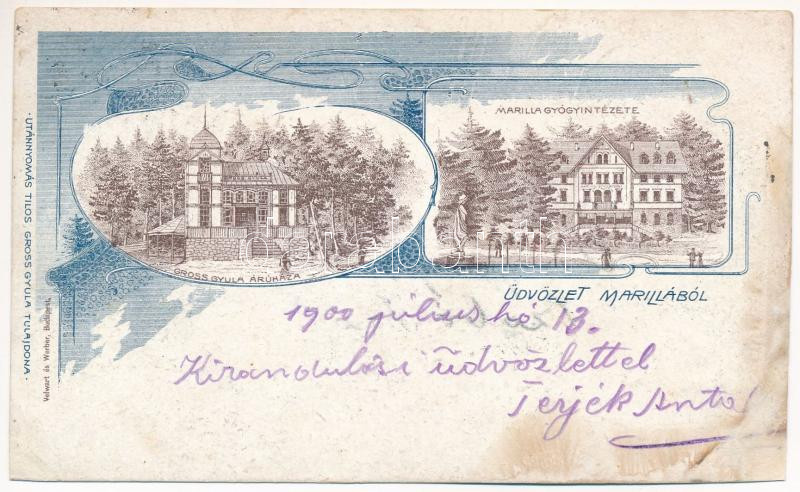 MARILLA GYÓGYINTÉZETE
GROSS GYULA ÁRÚHÁZA
ÜDVÖZLET MARILLÁBÓL
1900 július hó 13.
Kirándulási üdvözlettel
Terjék Antal
·UTÁNNYOMÁS TILOS GROSS GYULA TULAJDONA·
Velwart és Werber, Budapest.